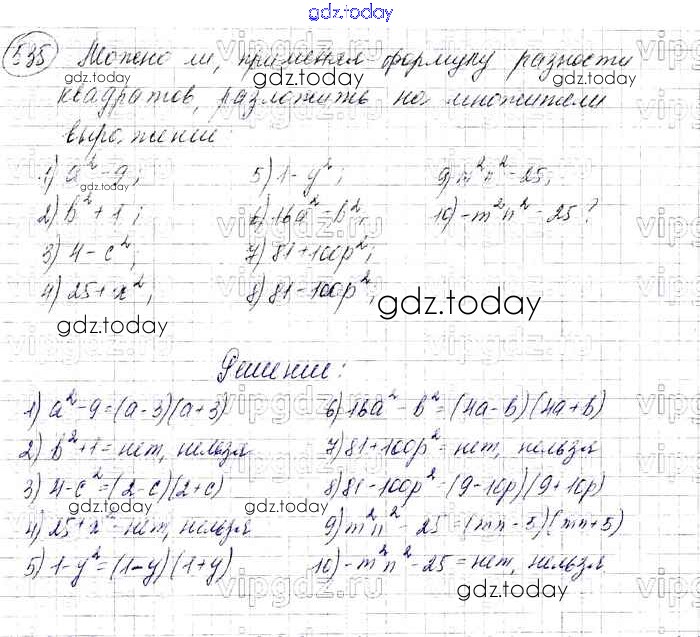 gdz.today
535 Можно ли, применяя формулу разности
квадратов, разложить на множители
выражение:
1) a² - 9; 5) 1 - y²; 9) m²n² - 25;
2) b² + 1; 6) 16a² - b²; 10) -m²n² - 25?
3) 4 - c²; 7) 81 + 100p²;
4) 25 + x²; 8) 81 - 100p²;
gdz.today
gdz.today
Решение:
1) a² - 9 = (a - 3)(a + 3) 6) 16a² - b² = (4a - b)(4a + b)
2) b² + 1 = нет, нельзя 7) 81 + 100p² = нет, нельзя
3) 4 - c² = (2 - c)(2 + c) 8) 81 - 100p² = (9 - 10p)(9 + 10p)
4) 25 + x² - нет, нельзя 9) m²n² - 25 = (mn - 5)(mn + 5)
5) 1 - y² = (1 - y)(1 + y) 10) -m²n² - 25 = нет, нельзя
gdz.today